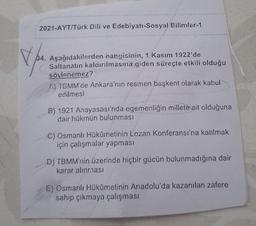 2021-AYT/Türk Dili ve Edebiyatı-Sosyal Bilimler-1
34. Aşağıdakilerden hangisinin, 1 Kasım 1922'de
Saltanatın kaldırılmasına giden süreçte etkili olduğu
söylenemez?
A) TBMM'de Ankara'nın resmen başkent olarak kabul
edilmesi
B) 1921 Anayasası'nda egemenliğin millete ait olduğuna
dair hükmün bulunması
C) Osmanlı Hükûmetinin Lozan Konferansı'na katılmak
için çalışmalar yapması
D) TBMM'nin üzerinde hiçbir gücün bulunmadığına dair
karar alınması
E) Osmanlı Hükûmetinin Anadolu'da kazanılan zafere
sahip çıkmaya çalışması